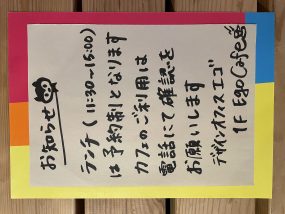 お知らせ
ランチ(11:30~15:00)
は予約制となります
カフェのご利用は
電話にて確認を
お願いします
デザインオフィスエゴ
1F Ego Cafe